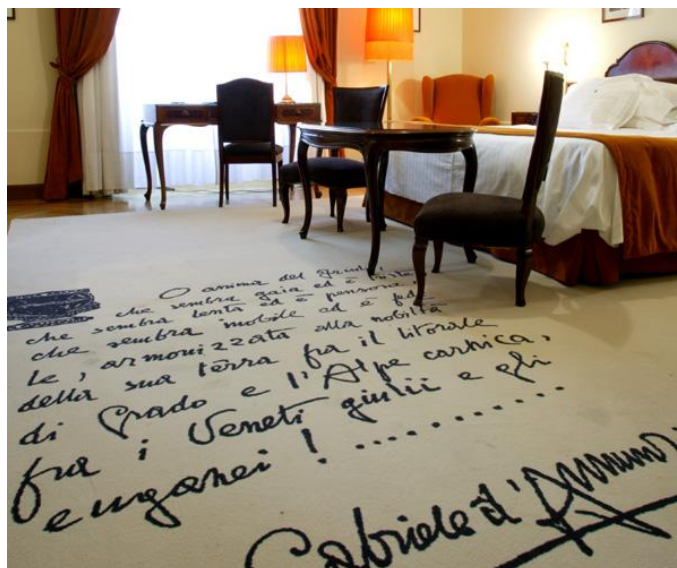 O anima del friuli,
che sembra gaia ed è triste,
che sembra lenta ed è pensosa,
che sembra mobile ed è fede
le, armonizzata alla nobiltà
della sua terra fra il litorale
di Grado e l'Alpe carnica,
fra i Veneti giulii e gli
euganei ! ............
Gabriele d'Annunzi